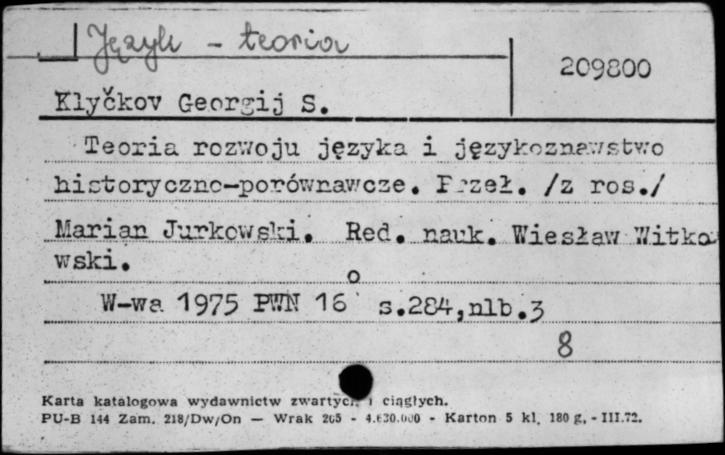 Język - teoria
209800
Klyčkov Georgij S.
Teoria rozwoju języka i językoznawstwo
historyczno-porównawcze. Przeł. /z ros./
Marian Jurkowski. Red. nauk. Wiesław Witko
wski.
W-wa 1975 PWN 16o s.284,nlb.3
8
Karta katalogowa wydawnictw zwartych i ciągłych.
PU-B 144 Zam. 218/Dw/On — Wrak 205 - 4.630.000 - Karton 5 kl. 180 g. - III.72.